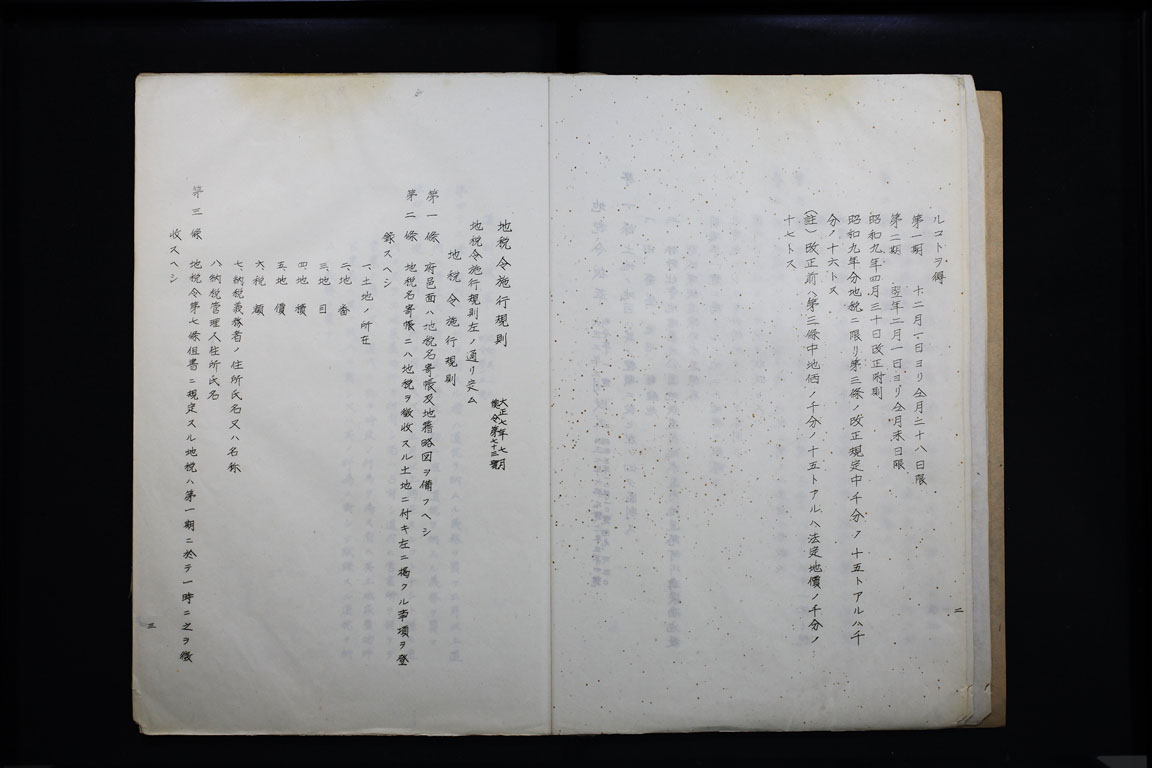 ルコトヲ得
第一期 十二月一日ヨリ仝月二十八日限
第二期 翌年二月一日ヨリ仝月末日限
昭和九年四月三十日改正附則
昭和九年分地税ニ限リ第三條ノ改正規定中千分ノ十五トアルハ千
分ノ十六トス
(註)改正前ハ第三條中地価ノ千分ノ十五トアルハ法定地價ノ千分ノ
十七トス
二
地税令施行規則 大正七年七月
令第七十三號
地税令施行規則左ノ通リ定ム
地税令施行規則
第一條 府邑面ハ地税名寄帳及地籍略図ヲ備フヘシ
第二條 地税名寄帳ニハ地税ヲ徴收スル土地ニ付キ左ニ掲クル事項ヲ登
録スヘシ
一、土地ノ所在
二、地番
三、地目
四、地積
五、地價
六、税額
七、納税義務者ノ住所氏名又ハ名称
八、納税管理人住所氏名
第三條 地税令第七條但書ニ規定スル地税ハ第一期ニ於テ一時ニ之ヲ徴
收スヘシ
三